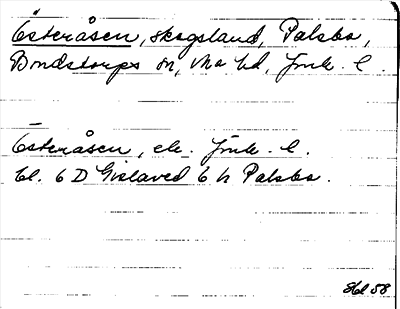 Österåsen, skogsland, Palsbo,
Bondstorps sn, Mo hd, Jönk. l.
Österåsen, ek. Jönk. l.
bl. 6 D Gislaved 6 h Palsbo.
58